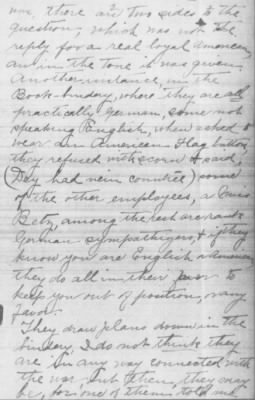 now, there are two sides to the
question, which was not the
reply for a real loyal American
an in the tone it was given
Another instance, in the
Book-bindery, where they are all
practically German, some not
speaking English, when asked to
wear an American Flag button,
they refused with scorn & said,
(Dey had nein countree) some
of the other employees, a Miss
Betz, among the rest are rank
German sympathizers, & if they
know you are English or American
they do all in their power to
keep you out of position, or any
favor.
They draw plans down in the
bindery, I do not think they
are in any way connected with
the war, but then, they may
be, for one of them told me